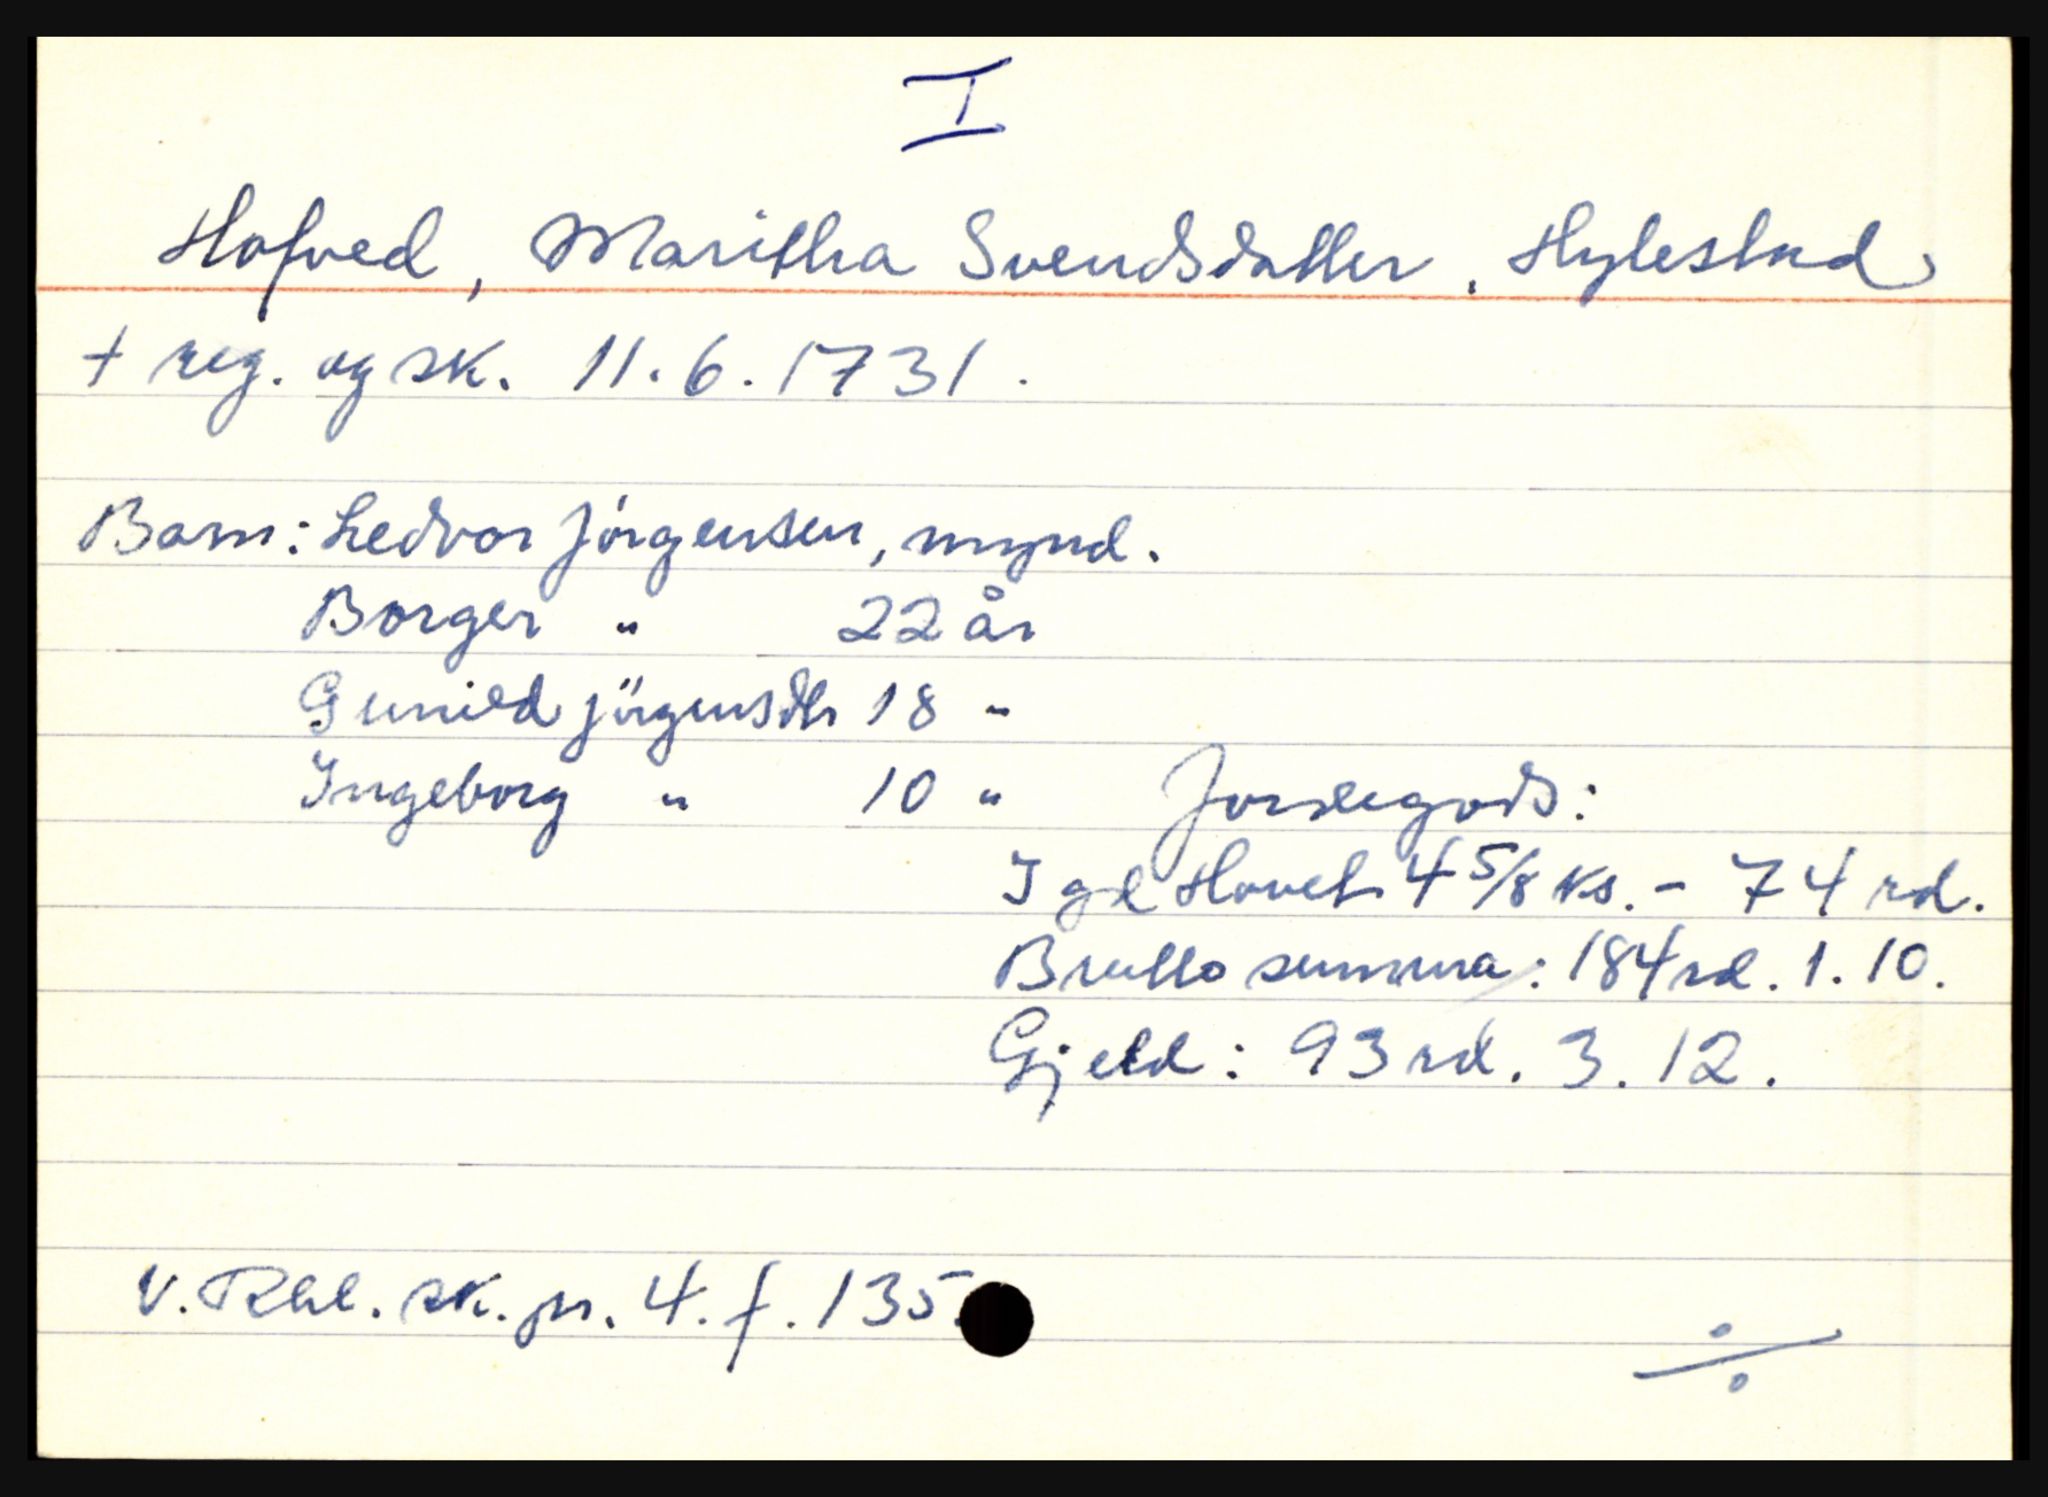 I
Hofved, Maritha Svendsdatter, Hylestad
+ reg. og sk. 11.6.1731.
Barn: Ledvor Jörgensen, mynd.
Borger " 22 år
Gunild Jörgensdtr 18 "
Ingeborg " 10 " Jordegods:
I gd Hovet 4 5/8 ks. - 74 rd.
Brutto summa: 184 rd. 1. 10.
Gjeld: 93 rd. 3. 12.
V. Rbl. sk. pr. 4. f. 135.
÷